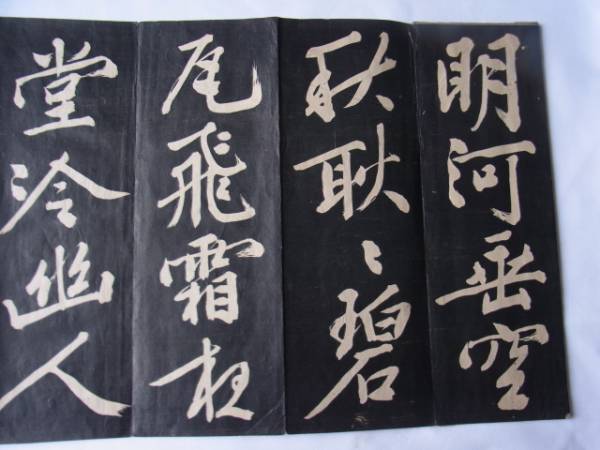 明河垂空
秋耿〻碧
瓦飛霜夜
堂冷幽人